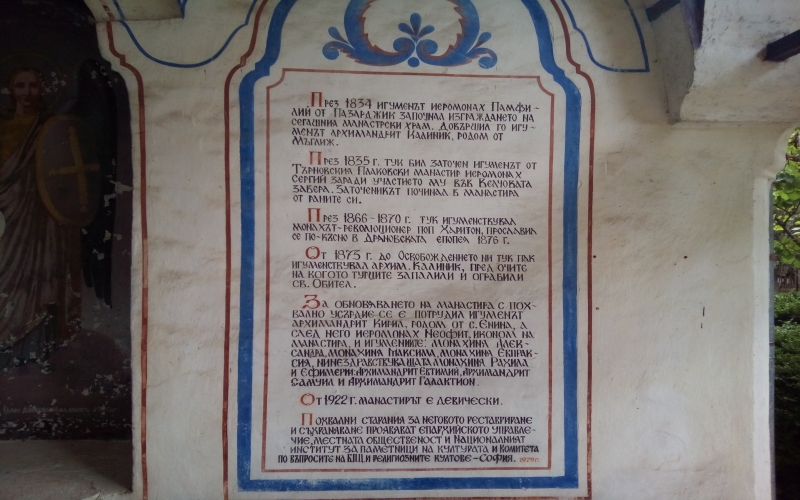 През 1834 игуменът иеромонах Памфи-
лий от Пазарджик започнал изграждането на
сегашния манастирски храм. Довършил го игу-
менът архимандрит Калиник, родом от
Мъглиж.
През 1835 г. тук бил заточен игуменът от
Търновския Плаковски манастир иеромонах
Сергий заради участието му във Велчовата
завера. Заточеникът починал в манастира
от раните си.
През 1866-1870 г. тук игуменствувал
монахът-революционер поп Харитон, прославил
се по-късно в Драновската епопея 1876 г.
От 1873 г. до Освобождението ни тук пак
игуменствувал архим. Калиник, пред очите
на когото турците запалили и ограбили
св. Обител.
За обновяването на манастира с пох-
вално усърдие се е потрудил игуменът
архимандрит Кирил, родом от с. Енина, а
след него иеромонах Неофит, иконом на
манастира, и игумениите: монахиня Алек-
сандра, монахиня Максима, монахиня Евпрак-
сия, ниноздравствуващата монахиня Рахила
и Ефимерии: Архимандрит Евтимий, Архимандрит
Самуил и Архимандрит Галактион.
От 1922 г. манастирът е девически.
Похвални старания за неговото реставриране
и съхраняване проявяват епархийското управле-
ние, местната общественост и Националният
институт за паметници на културата и Комитета
по въпросите на БПЦ и религиозните култове - София.